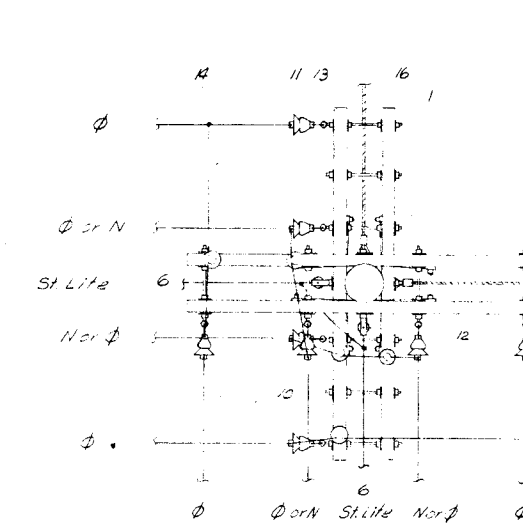 14 11 13 16
1
φ
φ or N
St. Lite 6
N or φ
12
10
φ
6
φ φ or N St. Lite N or φ φ